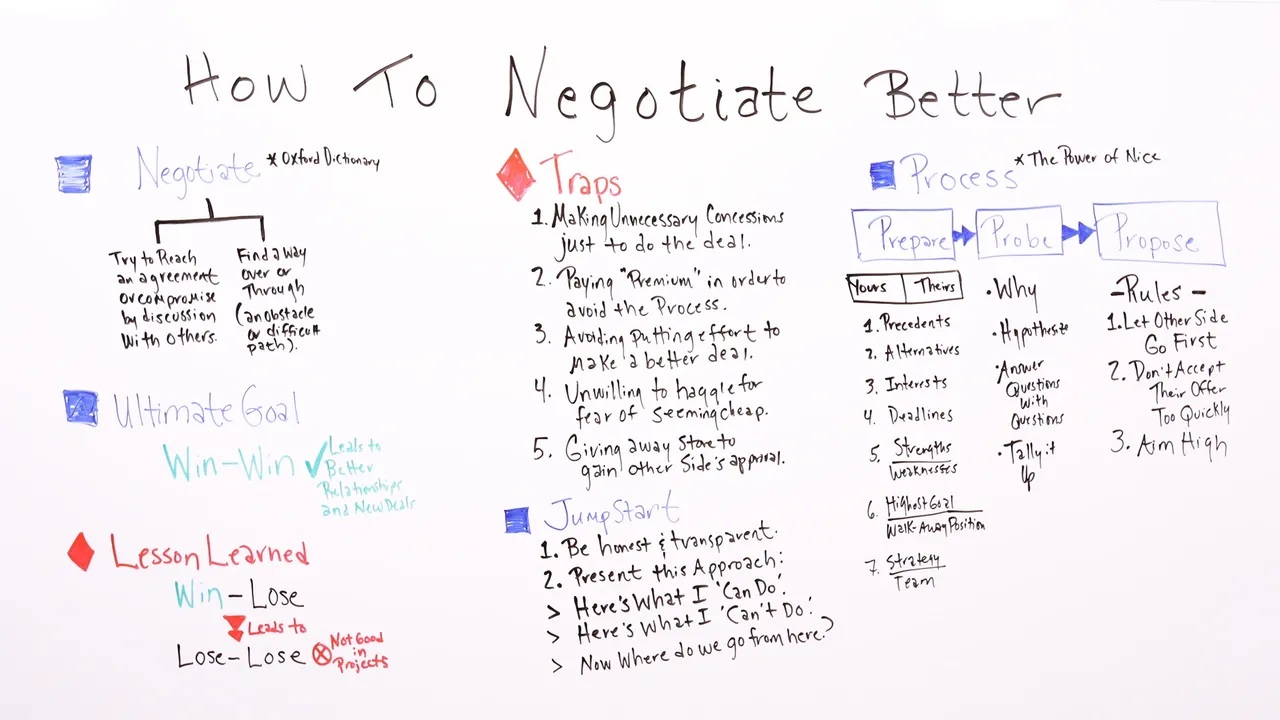 How To Negotiate Better
Negotiate * Oxford Dictionary
Try to Reach
an agreement
or compromise
by discussion
with others.
Find a way
over or
Through
(an obstacle
or difficult
path).
Ultimate Goal
Win-Win ✓
Leads to
Better
Relationships
and New Deals
Lesson Learned
Win-Lose
Leads to
Lose-Lose
Not Good
in
Projects
Traps
1. Making Unnecessary Concessions
just to do the deal.
2. Paying "Premium" in order to
avoid the Process.
3. Avoiding putting effort to
make a better deal.
4. Unwilling to haggle for
fear of seeming cheap.
5. Giving away store to
gain other side's approval.
Jump Start
1. Be honest & transparent.
2. Present this Approach:
> Here's What I 'Can Do'.
> Here's What I 'Can't Do'.
> Now Where do we go from here?
Process * The Power of Nice
Prepare
Probe
Propose
Yours Theirs
1. Precedents
2. Alternatives
3. Interests
4. Deadlines
5. Strengths
Weaknesses
6. Highest Goal
Walk-Away Position
7. Strategy
Team
• Why
• Hypothesize
• Answer
Questions
with
Questions
• Tally it
Up
- Rules -
1. Let Other Side
Go First
2. Don't Accept
Their Offer
Too Quickly
3. Aim High